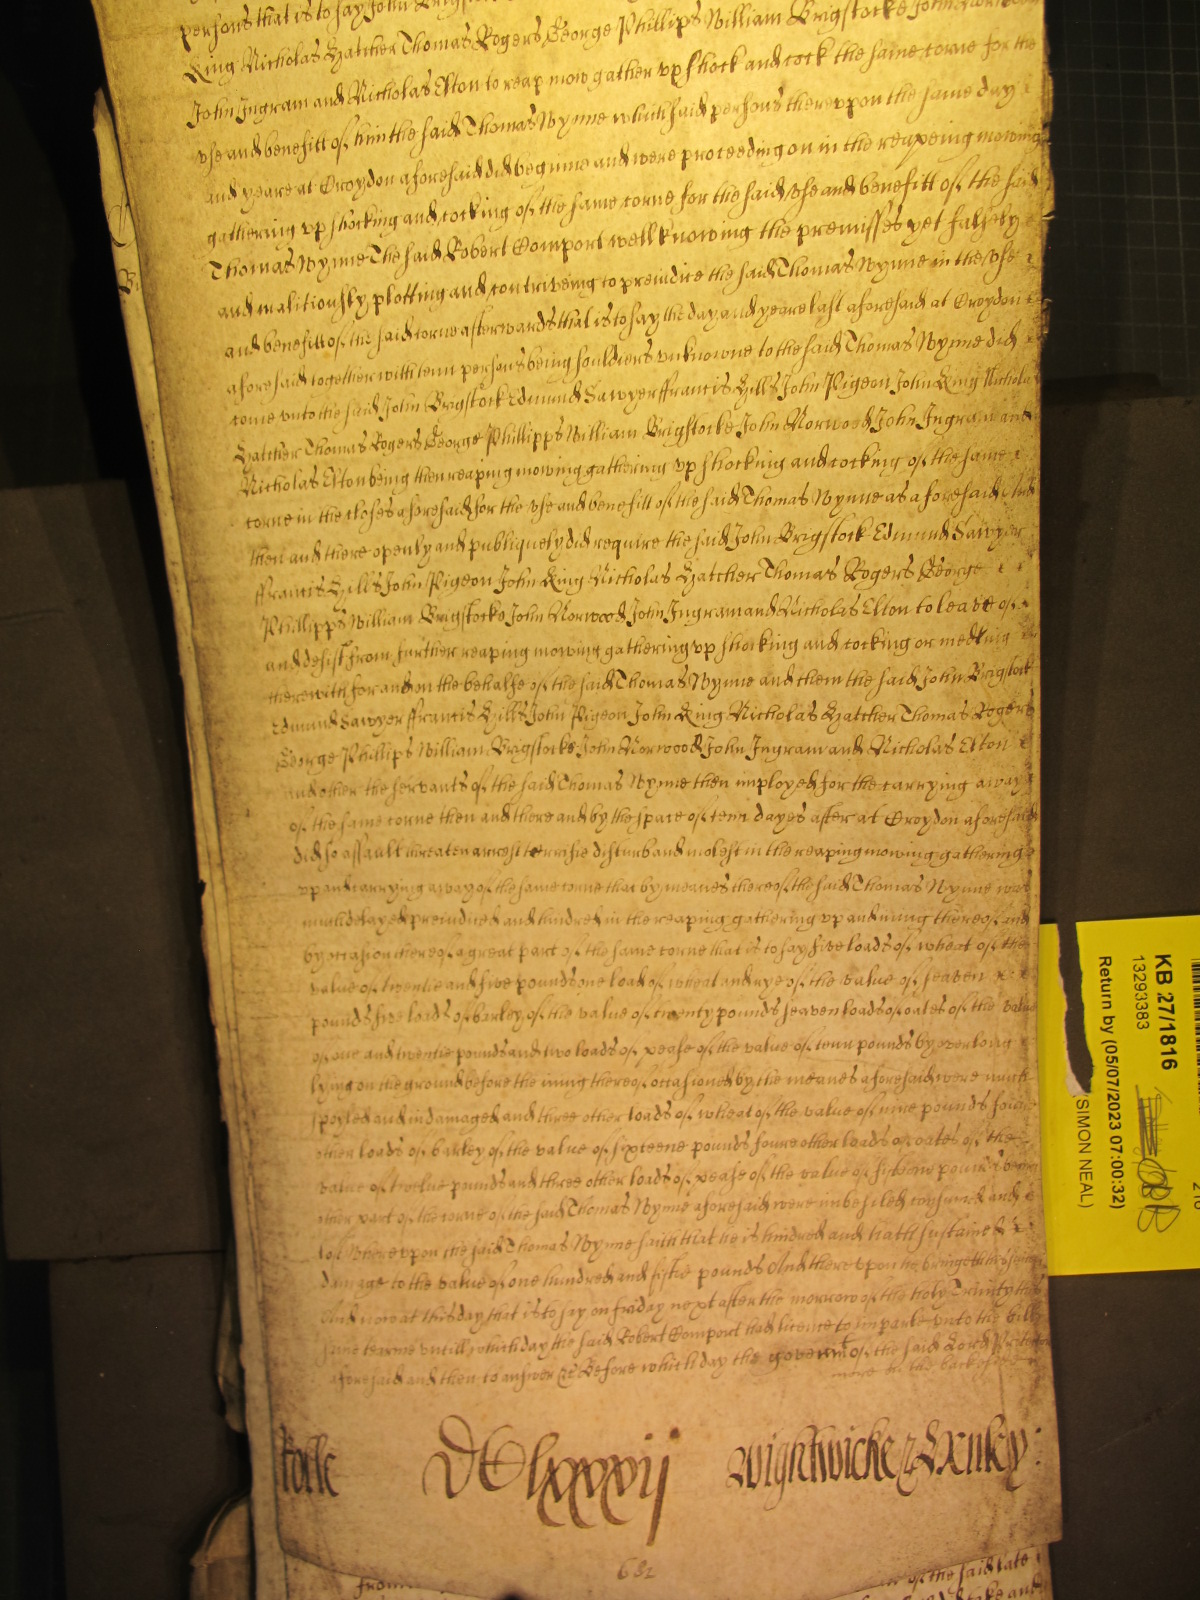 persons that is to say John
King Nicholas Hatcher Thomas Rogers George Phillipps William Brigstocke John Norwood
John Ingram and Nicholas Elton to reap mow gather vp shock and cock the same corne for the
vse and benefitt of him the said Thomas Wynne which said persons therevpon the same day
and yeare at Croydon aforesaid did beginne and were proceeding on in the reapeing mowing
gathering vp shocking and cocking of the same corne for the said vse and benefitt of the said
Thomas Wynne The said Robert Comport well knowing the premisses yet falsely
and malitiously plotting and contriveing to preiudice the said Thomas Wynne in the vse
and benefitt of the said corne afterwards that is to say the day and yeare last aforesaid at Croydon
aforesaid together with tenn persons being souldiers vnknowne to the said Thomas Wynne did
come vnto the said John Brigstock Edmund Sawyer ffrancis Hills John Pigeon John King Nicholas
Hatcher Thomas Rogers George Phillipps William Brigstocke John Norwood John Ingram and
Nicholas Elton being then reaping mowing gathering vp shocking and cocking of the same
corne in the closes aforesaid for the vse and benefitt of the said Thomas Wynne as aforesaid And
then and there openly and publiquely did require the said John Brigstock Edmund Sawyer
ffrancis Hills John Pigeon John King Nicholas Hatcher Thomas Rogers George
Phillipps William Brigstocke John Norwood John Ingram and Nicholas Elton to leave of
and desist from further reaping mowing gathering vp shocking and cocking or medling
therewith for and on the behalfe of the said Thomas Wynne and them the said John Brigstock
Edmund Sawyer ffrancis Hills John Pigeon John King Nicholas Hatcher Thomas Rogers
George Phillips William Brigstocke John Norwood John Ingram and Nicholas Elton
and other the servants of the said Thomas Wynne then imployed for the carrying away
of the same corne then and there and by the space of tenn dayes after at Croydon aforesaid
did so assault threaten arrest terrifie disturb and molest in the reaping mowing gathering
vp and carrying away of the same corne that by meanes thereof the said Thomas Wynne was
much delayed preiudiced and hindred in the reaping gathering vp and inning thereof and
by occasion thereof a great part of the same corne that is to say five loads of wheat of the
value of twentie and five pounds one load of wheat and rye of the value of seaven
pounds five loads of barley of the value of twenty pounds seaven loads of oates of the value
of one and twentie pounds and two loads of pease of the value of tenn pounds by over long
lying on the ground before the inning thereof occasioned by the meanes aforesaid were much
spoyled and indamaged and three other loads of wheat of the value of nine pounds foure
other loads of barley of the value of sixteene pounds foure other loads of oates of the
value of twelve pounds and three other loads of pease of the value of fifteene pounds being
other part of the corne of the said Thomas Wynne aforesaid were imbesiled consumed and
lost Wherevpon the said Thomas Wynne saith that he is hindred and hath sustained
damage to the value of one hundred and fiftie pounds And therevpon he bringeth this suite
And now at this day that is to say on friday next after the morrow of the holy Trinity this
same terme vntill which day the said Robert Comport had licence to imparle vnto the bill
aforesaid and then to answer &c Before which day the governmt of the said Lord Protector
more on the backside
Rolle DClxxxij Wightwicke & Oxnley
682
from of the said late
KB 27/1816
13293383
Return by (05/07/2023 07:00:32)
SIMON NEAL)